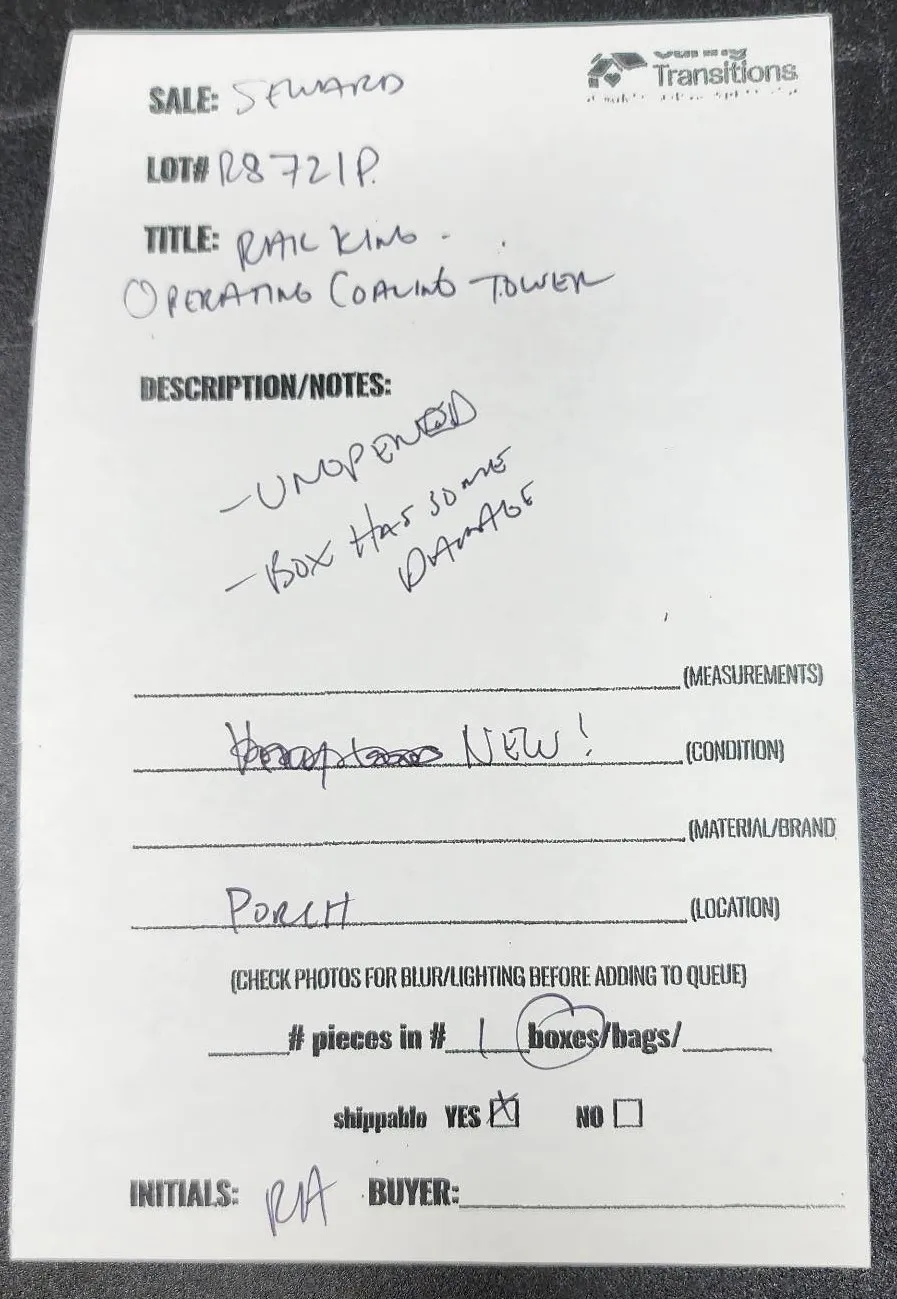 Transitions
SALE: SEWARD
LOT# R8721P.
TITLE: RAIL KING -
OPERATING COALING TOWER
DESCRIPTION/NOTES:
- UNOPENED
- BOX HAS SOME
DAMAGE
(MEASUREMENTS)
NEW! (CONDITION)
(MATERIAL/BRAND
PORCH (LOCATION)
(CHECK PHOTOS FOR BLUR/LIGHTING BEFORE ADDING TO QUEUE)
# pieces in # 1 boxes/bags/
shippable YES NO
INITIALS: RIA BUYER: